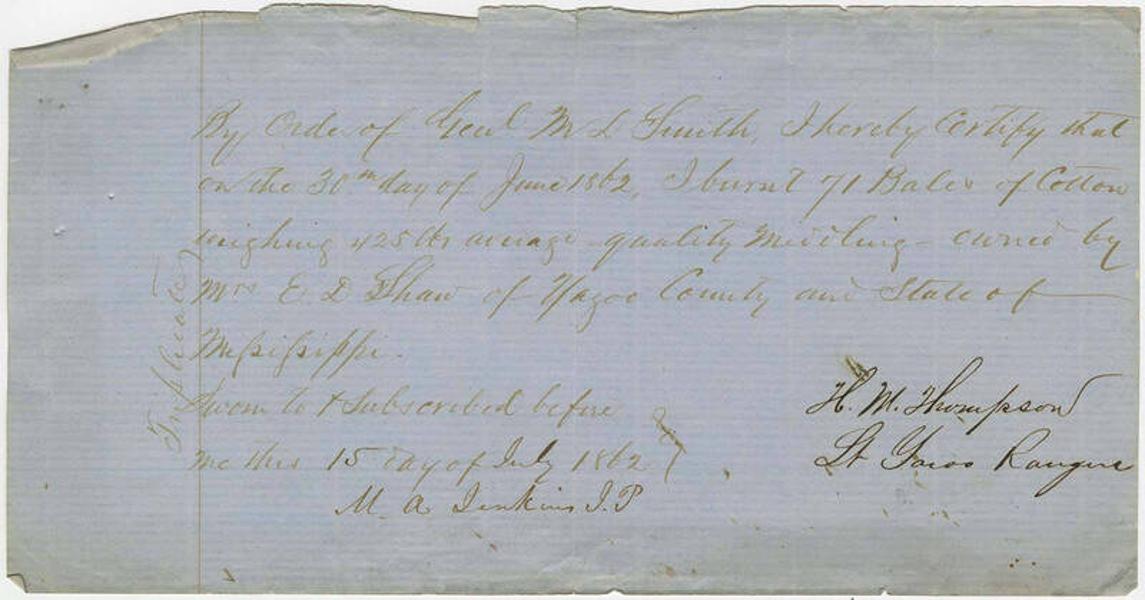 By Order of Genl M L Smith, I hereby Certify that
on the 30th day of June 1862, I burnt 71 Bales of Cotton
weighing 425 lbs average quality Midling – owned by
Mrs E. D Shaw of Yazoo County and State of
Missisippi.
Sworn to & Subscribed before
me this 15 day of July 1862
M. A. Jenkins J. P
H. M. Thompson
Lt Yazoo Rangers
Triplicate